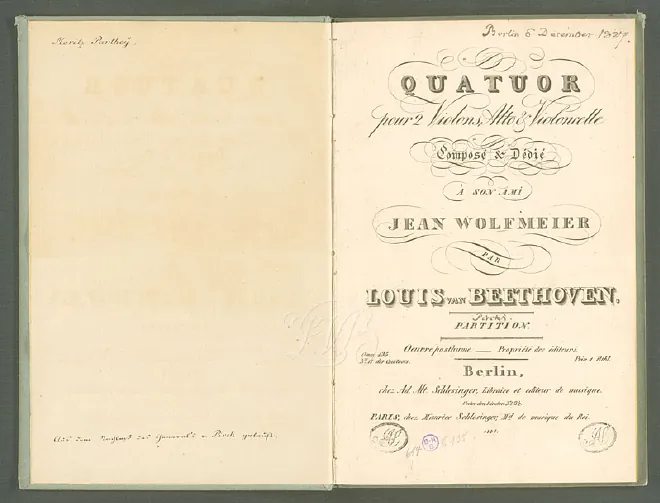 Moritz Parthey.
Aus dem Nachlass des Generals v.
Berlin 6 December 1827.
QUATUOR
pour 2 Violons, Alto & Violoncelle
Composé & Dédié
À SON AMI
JEAN WOLFMEIER
PAR
LOUIS VAN BEETHOVEN.
PARTITION.
Oeuvre posthume — Propriété des éditeurs.
Oeuv. 135.
No. 17 des Quatuors.
Prix 1 Rthl.
Berlin,
chez Ad. Mt. Schlesinger, Libraire et editeur de musique.
PARIS, chez Maurice Schlesinger, Md. de musique du Roi.